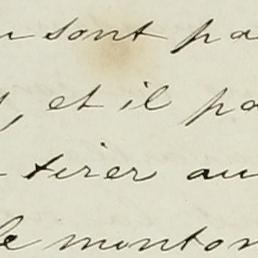 sont pa
, et il pa
tirer au
le monton